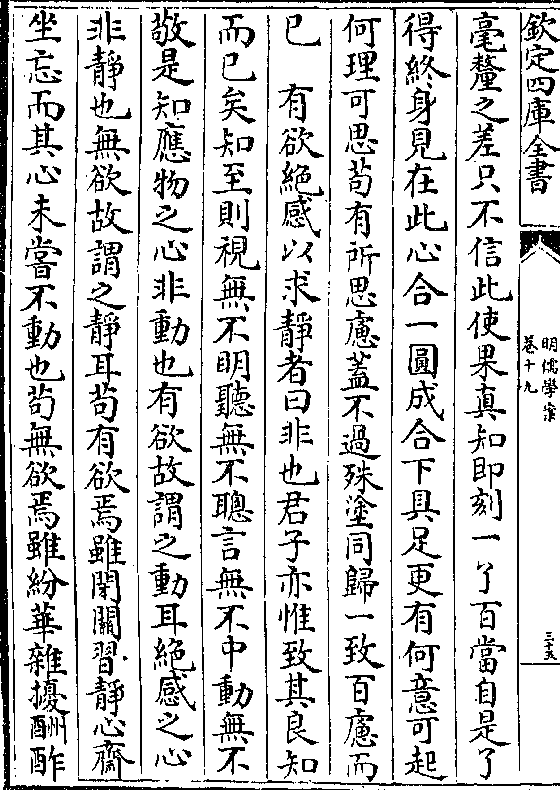 欽定四庫全書
明儒學案
卷十九
三十五
毫釐之差只不信此使果真知即刻一了百當自是了
得終身見在此心合一圓成合下具足更有何意可起
何理可思苟有所思慮蓋不過殊塗同歸一致百慮而
已　有欲絕感以求靜者曰非也君子亦惟致其良知
而已矣知至則視無不明聽無不聰言無不中動無不
敬是知應物之心非動也有欲故謂之動耳絕感之心
非靜也無欲故謂之靜耳苟有欲焉雖閉關習靜心齋
坐忘而其心未嘗不動也苟無欲焉雖紛華雜擾酬酢